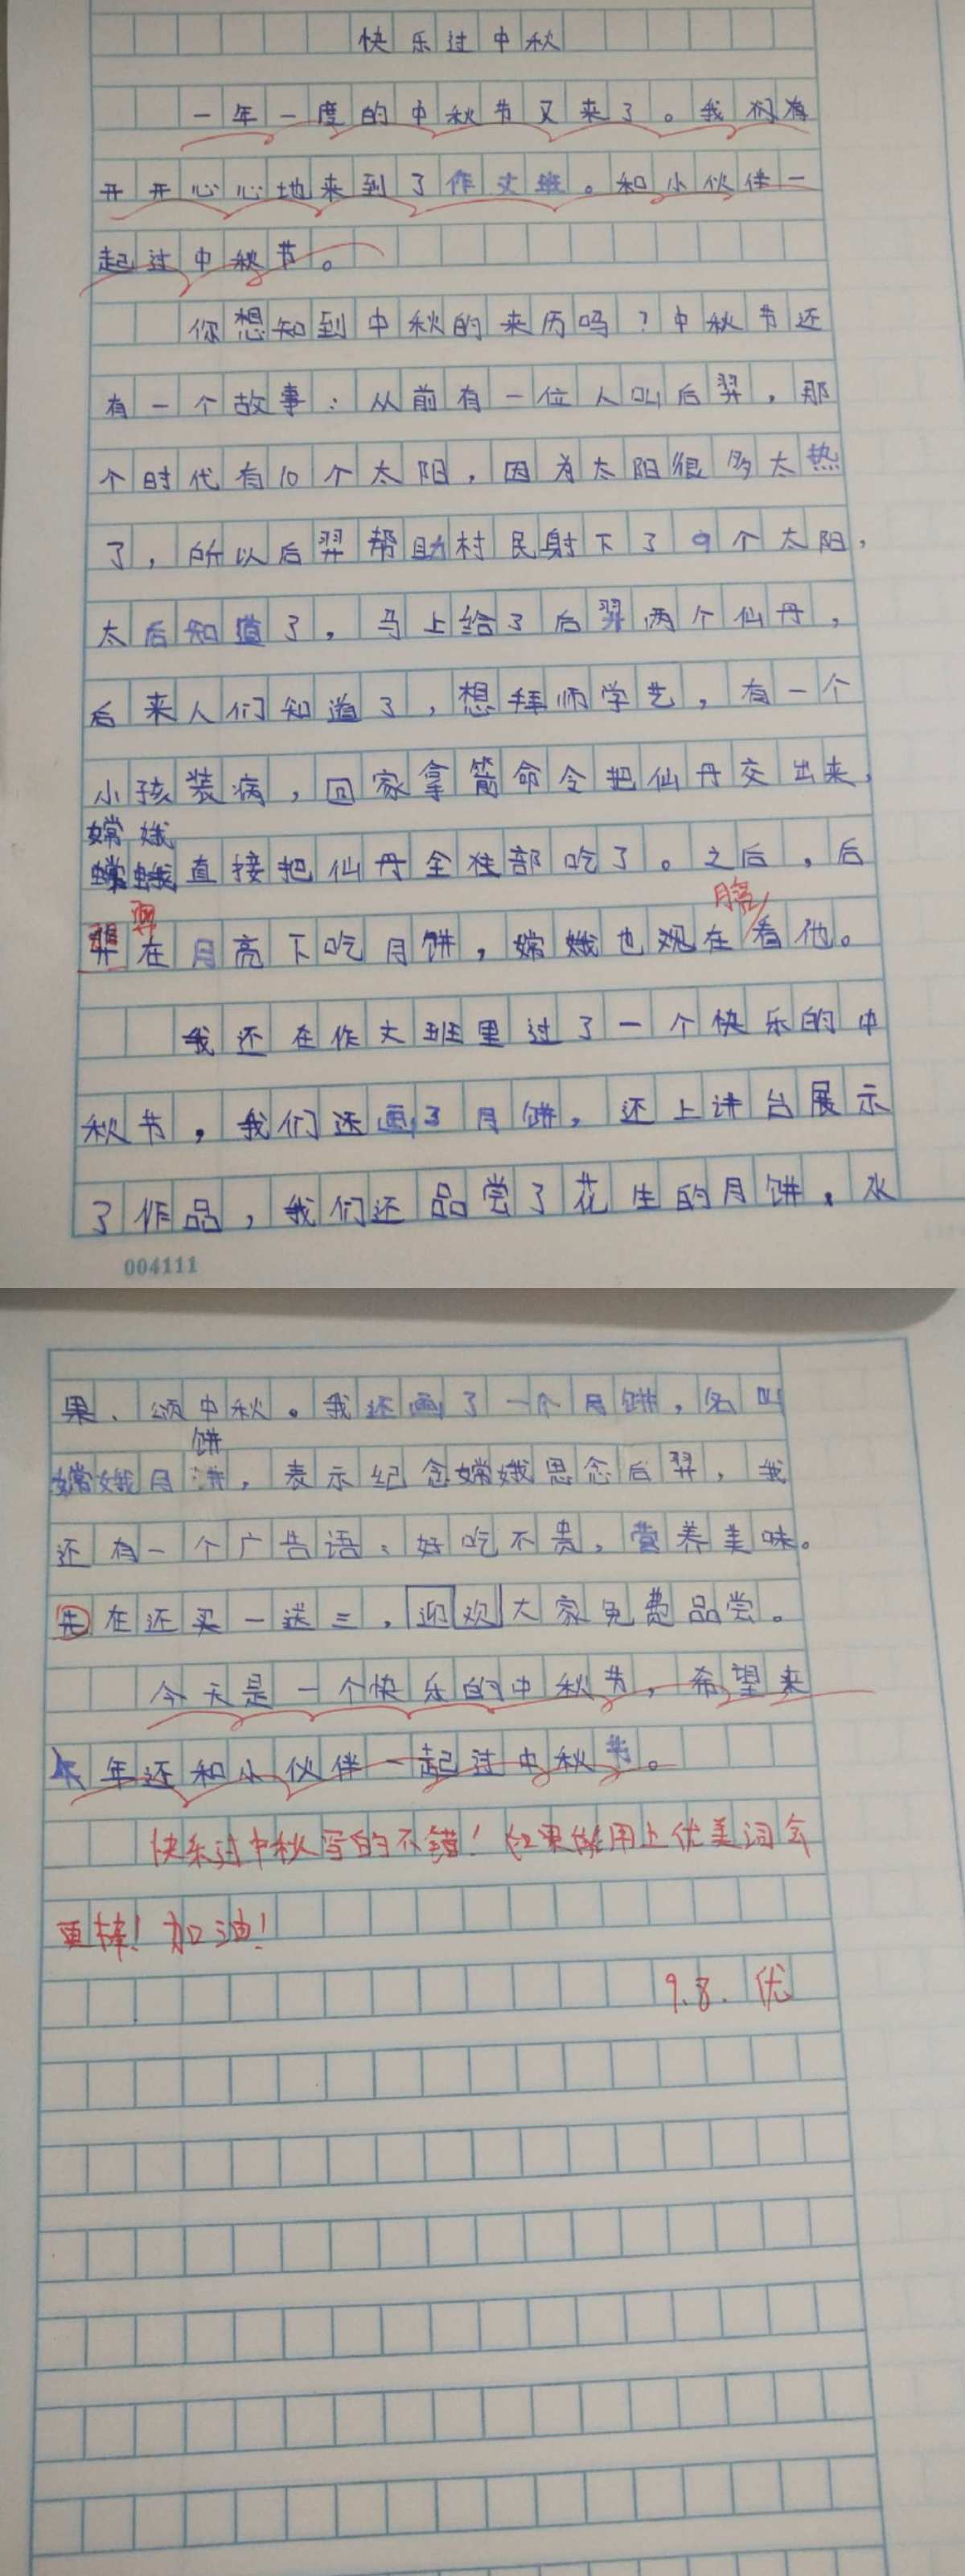 快乐过中秋
一年一度的中秋节又来了。我们有
开开心心地来到了作文班。和小伙伴一
起过中秋节。
你想知到中秋的来历吗？中秋节还
有一个故事：从前有一位人叫后羿，那
个时代有10个太阳，因为太阳很多太热
了，所以后羿帮助村民射下了9个太阳，
太后知道了，马上给了后羿两个仙丹，
后来人们知道了，想拜师学艺，有一个
小孩装病，回家拿箭命令把仙丹交出来，
嫦娥
直接把仙丹全往部吃了。之后，后
羿在月亮下吃月饼，嫦娥也观在看他。
我还在作文班里过了一个快乐的中
秋节，我们还画了月饼，还上讲台展示
了作品，我们还品尝了花生的月饼，水
004111
果、颂中秋。我还画了一个月饼，名叫
饼
嫦娥月，表示纪念嫦娥思念后羿，我
还有一个广告语、好吃不贵，营养美味。
在还买一送三，迎欢大家免费品尝。
今天是一个快乐的中秋节，希望来
年还和小伙伴一起过中秋节。
快乐过中秋写的不错！如果能用上优美词会
更棒！加油！
9.8. 优